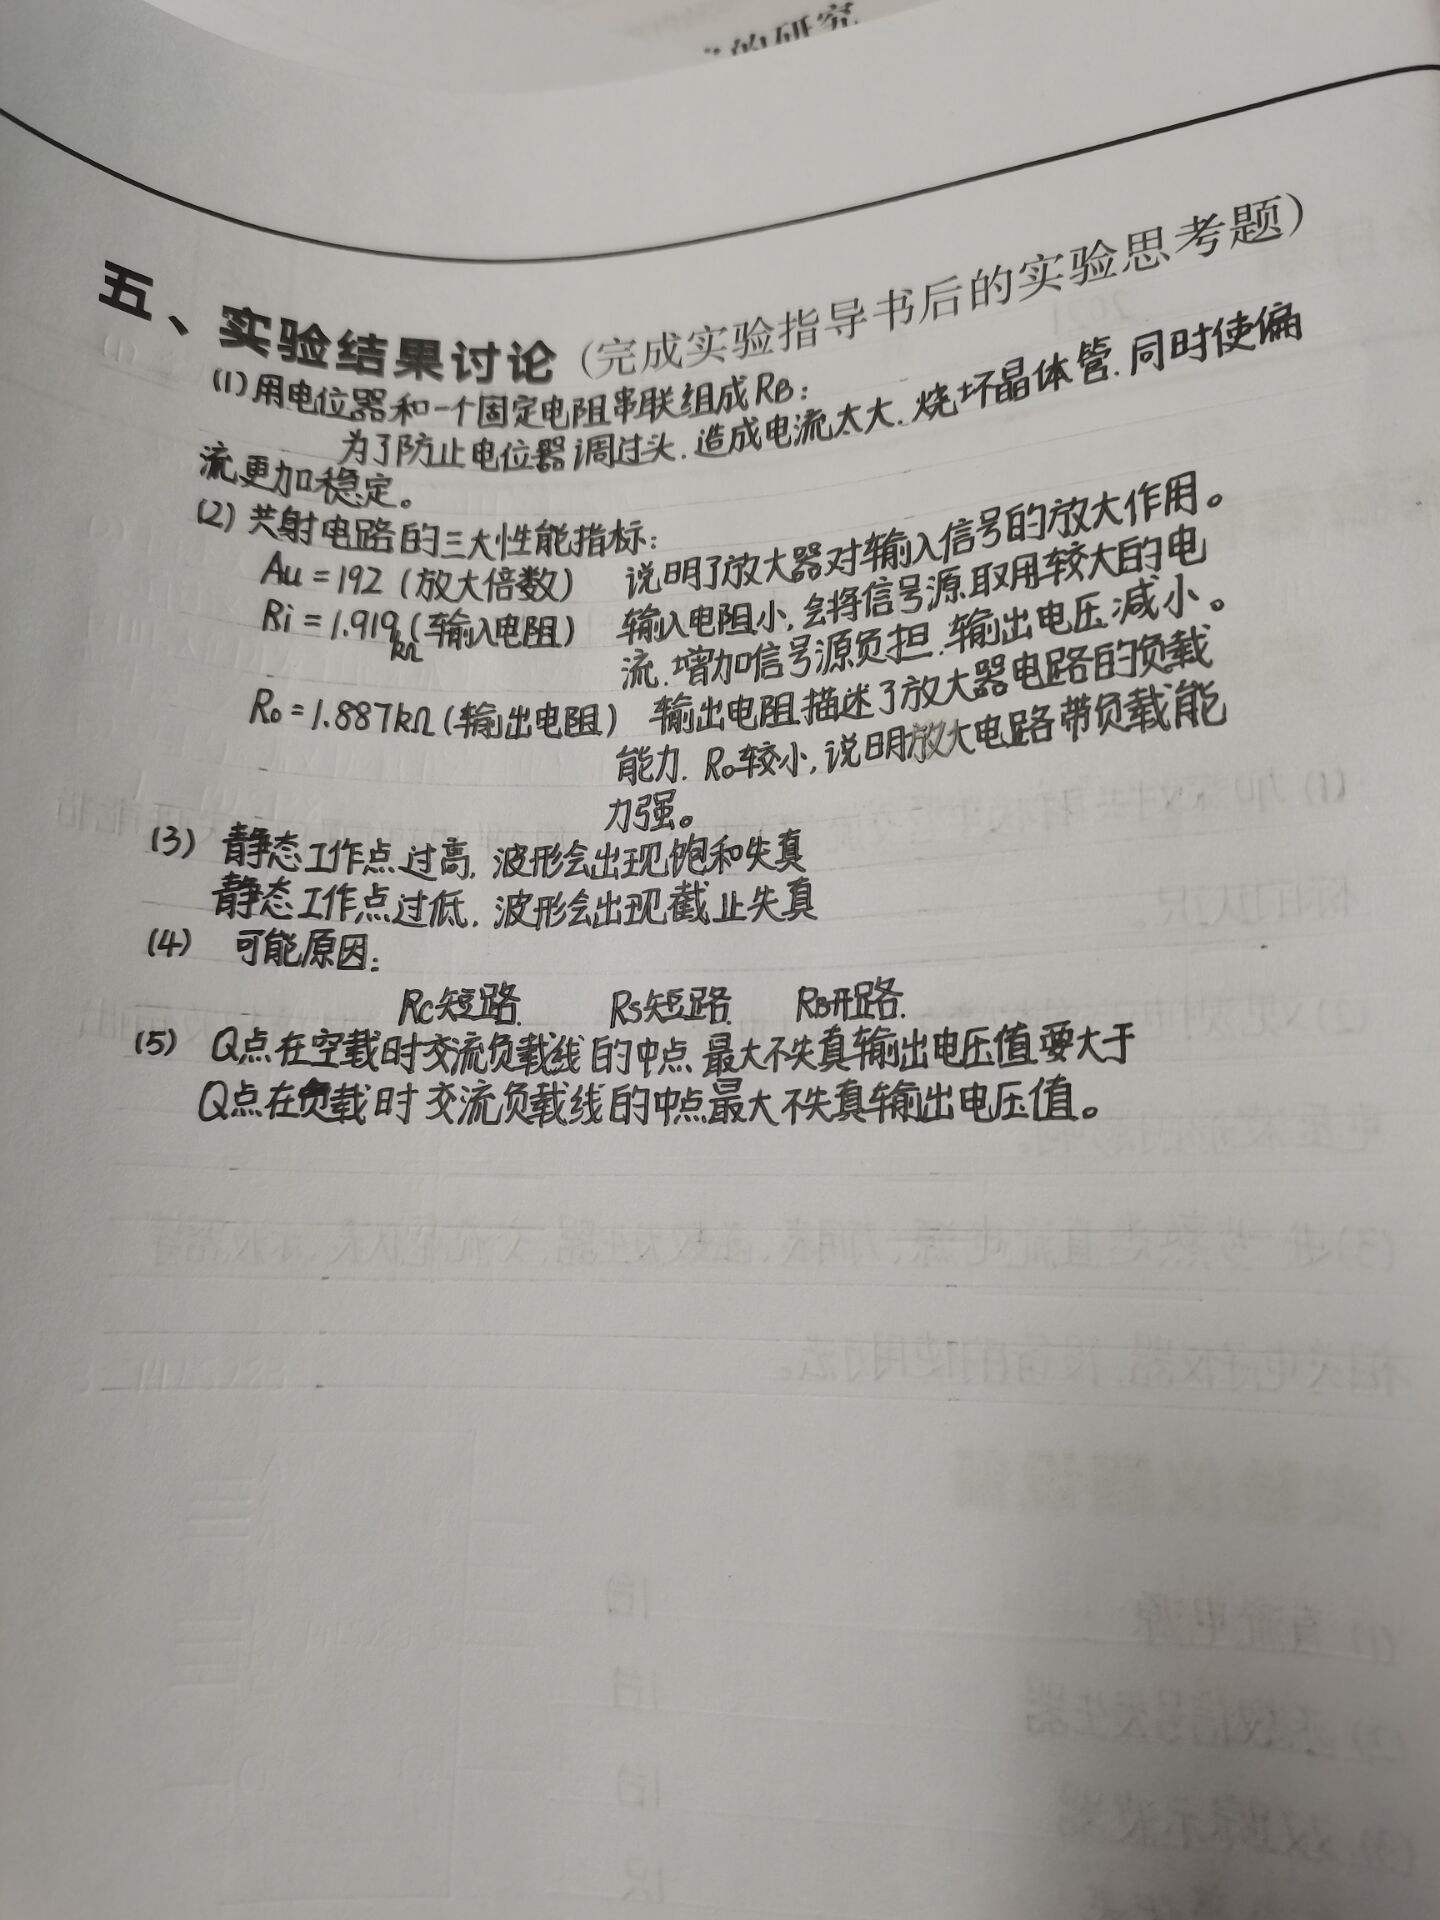 的研究
五、实验结果讨论（完成实验指导书后的实验思考题）
(1) 用电位器和一个固定电阻串联组成RB：
为了防止电位器调过头．造成电流太大．烧坏晶体管．同时使偏
流更加稳定。
(2) 共射电路的三大性能指标：
Au = 192 (放大倍数) 说明了放大器对输入信号的放大作用。
Ri = 1.919kΩ (输入电阻) 输入电阻小，会将信号源取用较大的电
流．增加信号源负担．输出电压减小。
Ro = 1.887kΩ (输出电阻) 输出电阻描述了放大器电路的负载
能力．Ro较小，说明放大电路带负载能
力强。
(3) 静态工作点过高，波形会出现饱和失真
静态工作点过低．波形会出现截止失真
(4) 可能原因：
Rc短路． Rs短路． RB开路．
(5) Q点在空载时交流负载线的中点最大不失真输出电压值要大于
Q点在负载时交流负载线的中点最大不失真输出电压值。